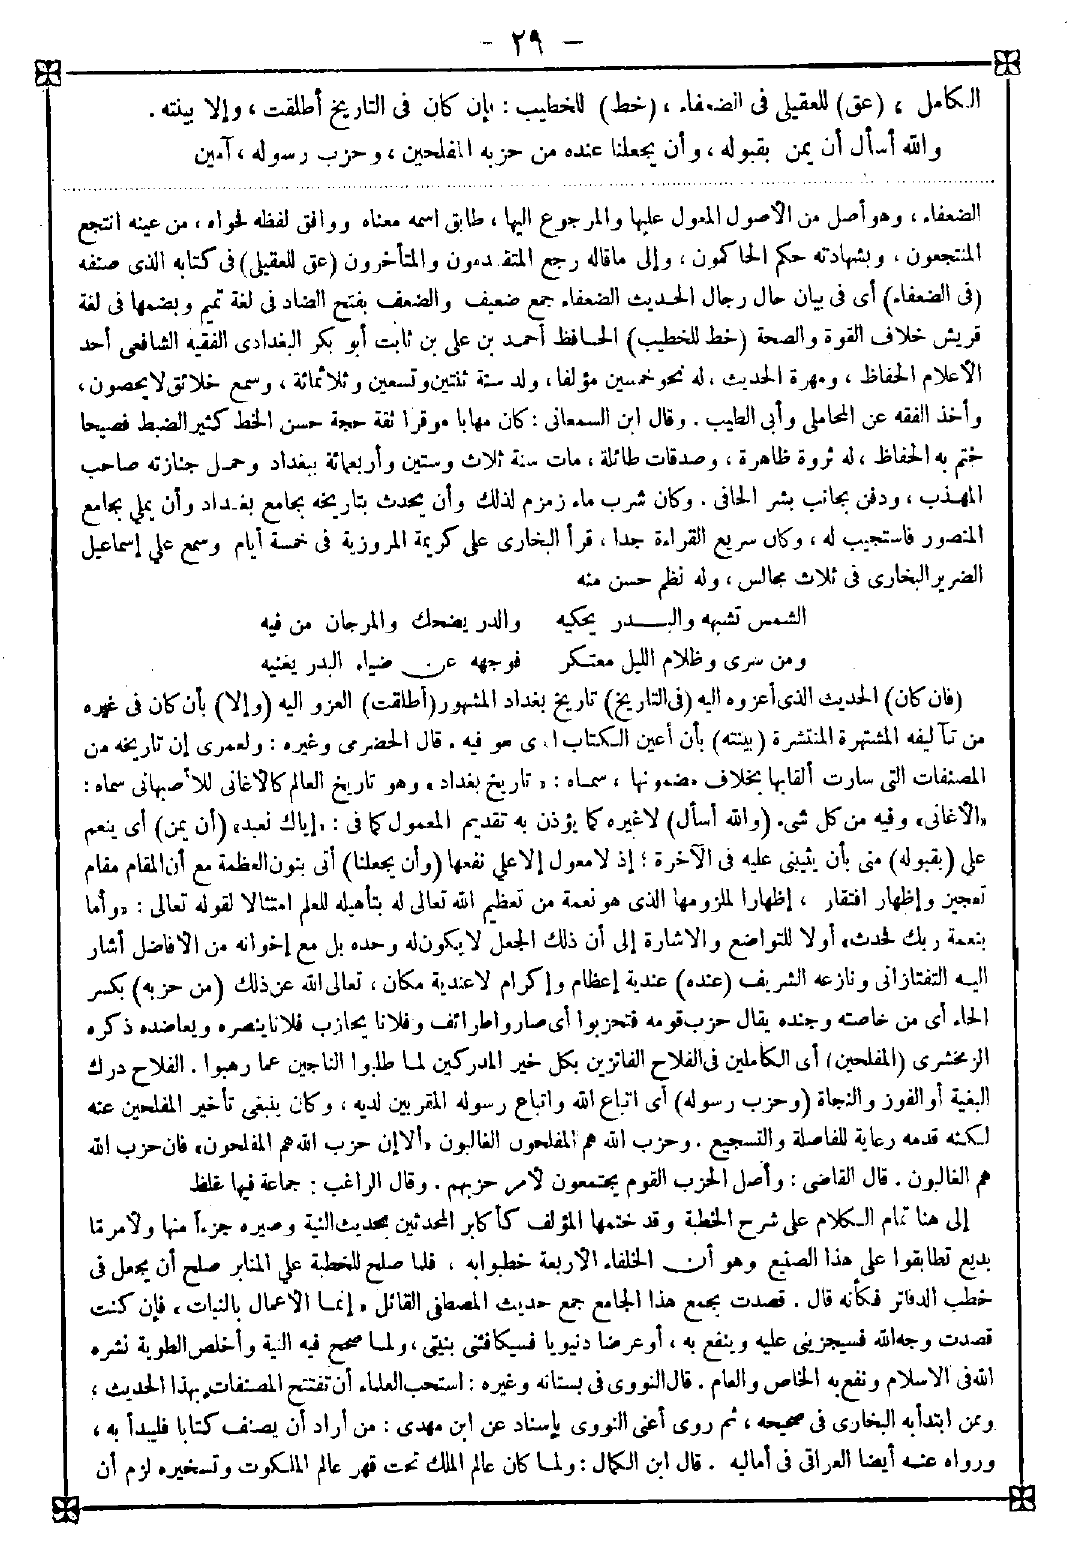 - ٢٩ -
الكامل ، (عق) للعقيلى فى الضعفاء ، (خط) للخطيب : فإن كان فى التاريخ أطلقت ، وإلا بينته .
والله أسأل أن يمن بقبوله ، وأن يجعلنا عنده من حزبه المفلحين ، وحزب رسوله ، آمين
الضعفاء ، وهو أصل من الأصول المعول عليها والمرجوع اليها ، طابق اسمه معناه ووافق لفظه فحواه ، من عينه انتجع
المنتجعون ، وبشهادته حكم الحاكمون ، وإلى ماقاله رجع المتقدمون والمتأخرون (عق للعقيلى) فى كتابه الذى صنفه
(فى الضعفاء) أى فى بيان حال رجال الحديث الضعفاء جمع ضعيف والضعف بفتح الضاد فى لغة تميم وبضمها فى لغة
قريش خلاف القوة والصحة (خط للخطيب) الحافظ أحمد بن على بن ثابت أبو بكر البغدادى الفقيه الشافعى أحد
الأعلام الحفاظ ، ومهرة الحديث ، له نحو خمسين مؤلفا ، ولد سنة ثنتين وتسعين وثلاثمائة ، وسمع خلائق لايحصون ،
وأخذ الفقه عن المحاملى وأبى الطيب . وقال ابن السمعانى : كان مهابا موقرا ثقة حجة حسن الخط كثير الضبط فصيحا
ختم به الحفاظ ، له ثروة ظاهرة ، وصدقات طائلة ، مات سنة ثلاث وستين وأربعمائة ببغداد وحمل جنازته صاحب
المهذب ، ودفن بجانب بشر الحافى . وكان شرب ماء زمزم لذلك وأن يحدث بتاريخه بجامع بغداد وأن يملى بجامع
المنصور فاستجيب له ، وكان سريع القراءة جدا ، قرأ البخارى على كريمة المروزية فى خمسة أيام وسمع على إسماعيل
الضرير البخارى فى ثلاث مجالس ، وله نظم حسن منه
الشمس تشبهه والبدر يحكيه والدر يضحك والمرجان من فيه
ومن سرى وظلام الليل معتكر فوجهه عن ضياء البدر يغنيه
(فان كان) الحديث الذى أعزوه اليه (فى التاريخ) تاريخ بغداد المشهور (أطلقت) العزو اليه (وإلا) بأن كان فى غيره
من تآليفه المشتهرة المنتشرة (بينته) بأن أعين الكتاب الذى هو فيه . قال الحضرمى وغيره : ولعمرى إن تاريخه من
المصنفات التى سارت ألقابها بخلاف مضمونها ، سماه : «تاريخ بغداد» وهو تاريخ العالم كالأغانى للأصبهانى سماه :
«الأغانى» وفيه من كل شىء . (والله أسأل) لاغيره كما يؤذن به تقديم المعمول كما فى : «إياك نعبد» (أن يمن) أى ينعم
على (بقبوله) منى بأن يثيبنى عليه فى الآخرة ؛ إذ لامعول إلا على نفعها (وأن يجعلنا) أتى بنون العظمة مع أن المقام مقام
تعجيز وإظهار افتقار ، إظهارا لملزومها الذى هو نعمة من تعظيم الله تعالى له بتأهيله للعلم امتثالا لقوله تعالى : «وأما
بنعمة ربك فحدث» أولا للتواضع والاشارة إلى أن ذلك الجعل لا يكون له وحده بل مع إخوانه من الأفاضل أشار
اليه التفتازانى ونازعه الشريف (عنده) عندية إعظام وإكرام لاعندية مكان ، تعالى الله عن ذلك (من حزبه) بكسر
الحاء أى من خاصته وجنده يقال حزب قومه فتحزبوا أى صاروا طرائف وفلانا يحازب فلانا ينصره ويعاضده ذكره
الزمخشرى (المفلحين) أى الكاملين فى الفلاح الفائزين بكل خير المدركين لما طلبوا الناجين عما رهبوا . الفلاح درك
البغية أو الفوز والنجاة (وحزب رسوله) أى اتباع الله واتباع رسوله المقربين لديه ، وكان ينبغى تأخير المفلحين عنه
لكنه قدمه رعاية للفاصلة والتسجيع . وحزب الله هم المفلحون الغالبون «ألا إن حزب الله هم المفلحون» فان حزب الله
هم الغالبون . قال القاضى : وأصل الحزب القوم يجتمعون لأمر حزبهم . وقال الراغب : جماعة فيها غلظ
إلى هنا تمام الكلام على شرح الخطبة وقد ختمها المؤلف كأكابر المحدثين بحديث النية وصيره جزءاً منها ولأمر مّا
بديع تطابقوا على هذا الصنيع وهو أن الخلفاء الأربعة خطبوا به ، فلما صلح للخطبة على المنابر صلح أن يجعل فى
خطب الدفاتر فكأنه قال . قصدت بجمع هذا الجامع جمع حديث المصطفى القائل «إنما الأعمال بالنيات» فإن كنت
قصدت وجه الله فسيجزينى عليه وينفع به ، أو عرضا دنيويا فسيكافئنى بنيتى ، ولما صحح فيه النية وأخلص الطوية نشره
الله فى الاسلام ونفع به الخاص والعام . قال النووى فى بستانه وغيره : استحب العلماء أن تفتتح المصنفات بهذا الحديث ،
وممن ابتدأ به البخارى فى صحيحه ، ثم روى أعنى النووى بإسناد عن ابن مهدى : من أراد أن يصنف كتابا فليبدأ به ،
ورواه عنه أيضا العراقى فى أماليه . قال ابن الكمال : ولما كان عالم الملك تحت قهر عالم الملكوت وتسخيره لزم أن